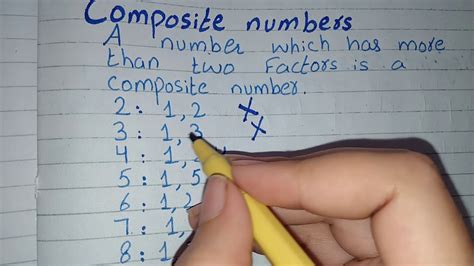 Composite numbers
A number which has more
than two Factors is a
composite number.
2: 1, 2 X
3: 1, 3 X
4: 1,
5: 1, 5
6: 1, 2
7: 1,
8: 1